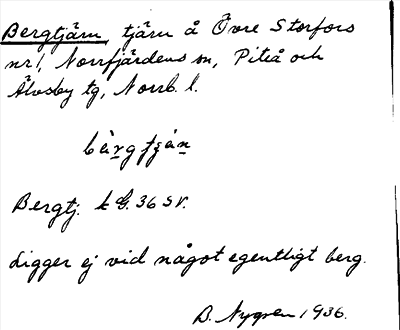 Bergtjärn, tjärn å Övre Storfors
nr 1, Norrfjärdens sn, Piteå och
Älvsby tg, Norrb. l.
bærgtjæn
Bergtj. k G. 36 sv.
Ligger ej vid något egentligt berg.
B. Nygren 1936.